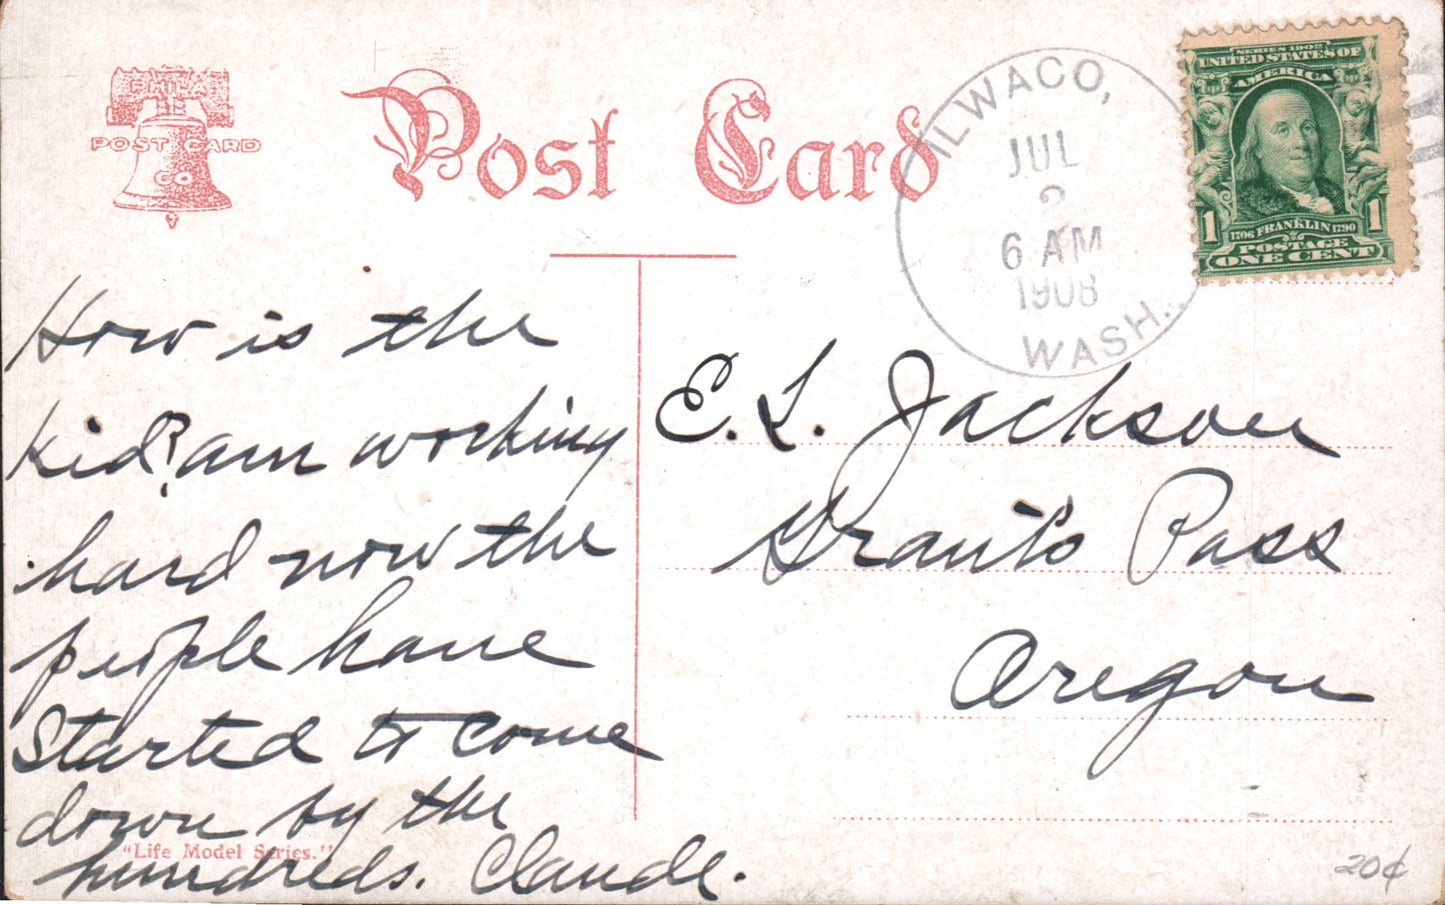 PHILA.
POST CARD
CO
Post Card
ILWACO,
JUL
2
6 AM
1908
WASH.
SERIES 1902
UNITED STATES OF
AMERICA
1 1706 FRANKLIN 1790 1
POSTAGE
ONE CENT
How is the
Kid? am working
hard now the
people have
Started to come
down by the
"Life Model Series."
hundreds. Claude.
E. L. Jackson
Grant's Pass
Oregon
20¢